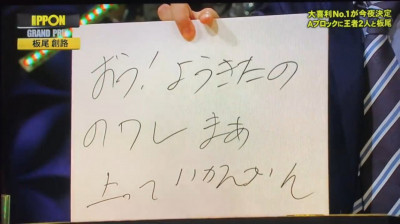 IPPON
GRAND PRIX
板尾 創路
大喜利No.1が今夜決定
Aブロックに王者2人と板尾
おう!ようきたの
のワレ まあ
上って いかんかん